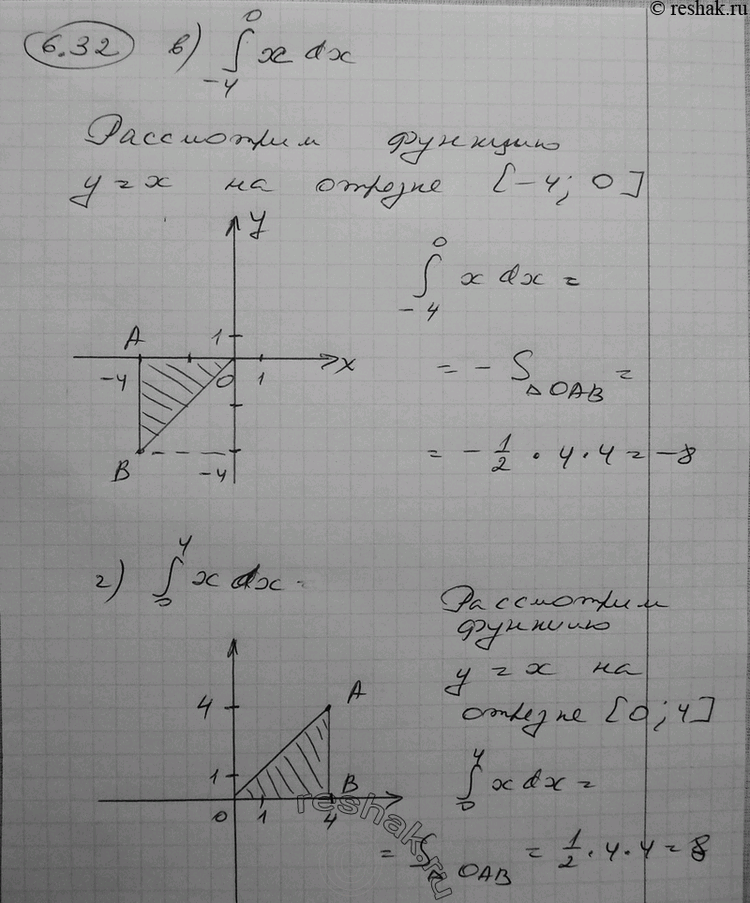 © reshak.ru
6.32 в) ∫₋₄⁰ x dx
Рассмотрим функцию
y = x на отрезке [-4; 0]
y
∫₋₄⁰ x dx =
A 1
-4 0 1 x
= - S△OAB =
= - 1/2 · 4 · 4 = -8
B -4
г) ∫₀⁴ x dx
Рассмотрим
функцию
y = x на
отрезке [0; 4]
4 A
1 B
0 1 4
∫₀⁴ x dx =
= S△OAB = 1/2 · 4 · 4 = 8
reshak.ru